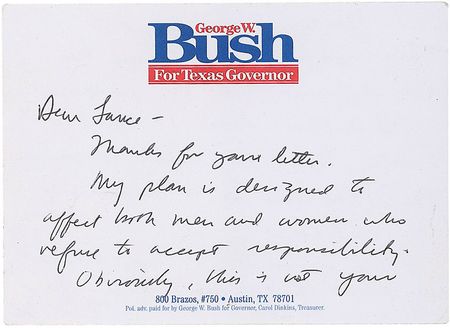 George W.
Bush
For Texas Governor
Dear Lance –
Thanks for your letter.
My plan is designed to
affect both men and women who
refuse to accept responsibility.
Obviously, this is not your
800 Brazos, #750 • Austin, TX 78701
Pol. adv. paid for by George W. Bush for Governor, Carol Dinkins, Treasurer.